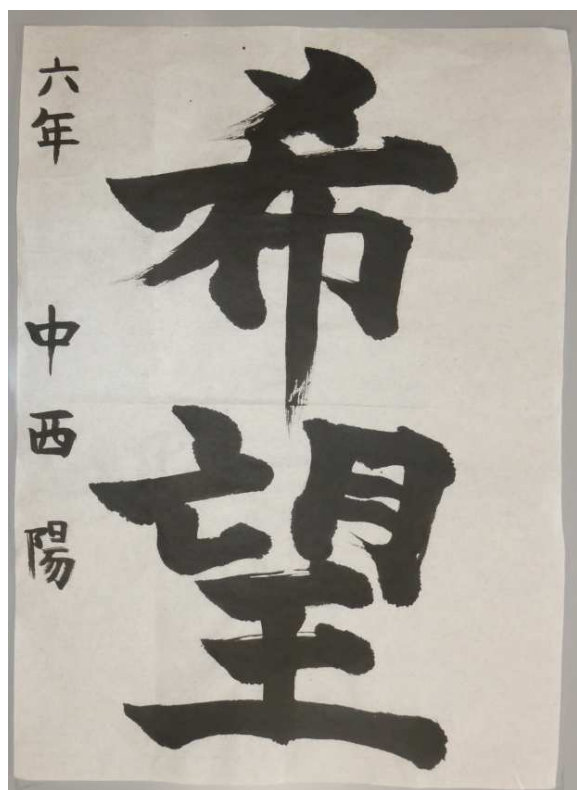 希望
六年 中西陽